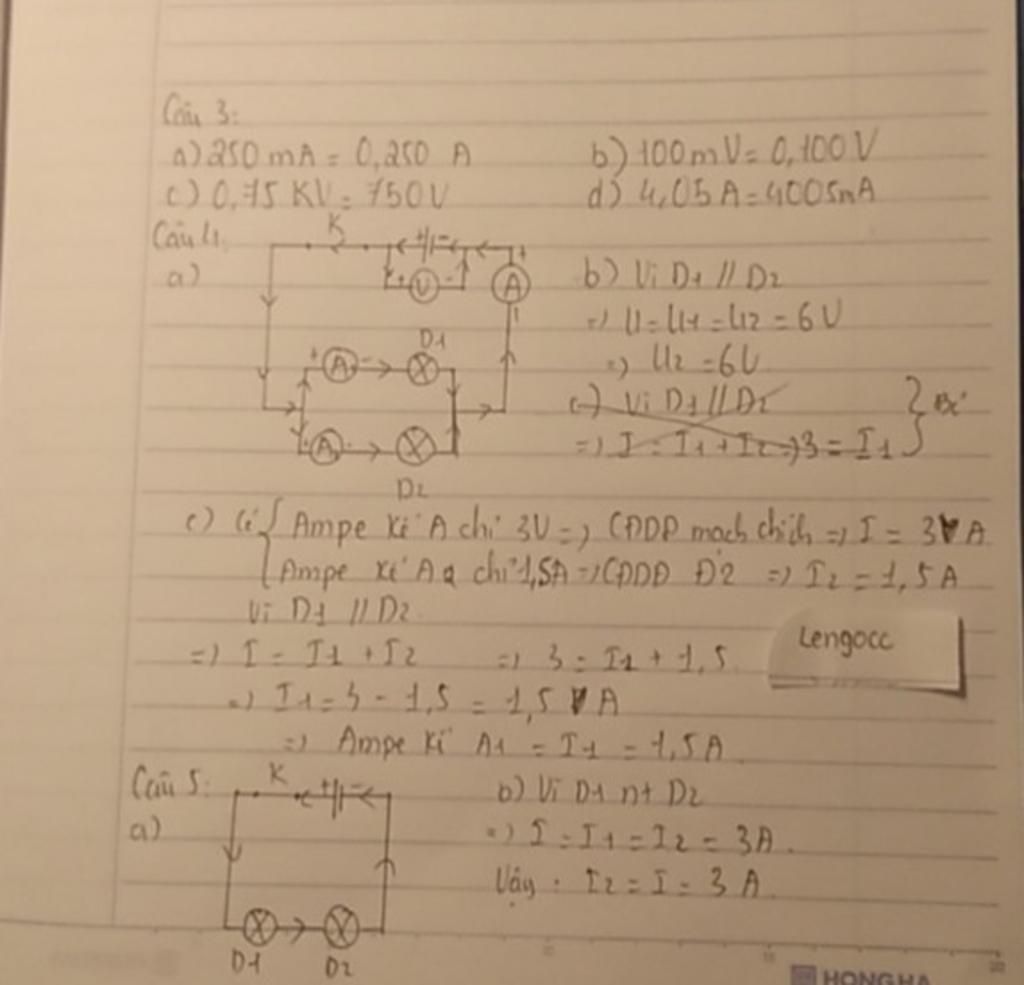 Câu 3:
a) 250 mA = 0,250 A b) 100mV = 0,100V
c) 0,75 KV = 750V d) 4,05A = 4005mA
Câu 4:
K
+ -
a)
+ V -
+
A
-
b) Vì D1 // D2
=> U = U1 = U2 = 6V
=> U2 = 6V
D1
+ A1 -
D2
c) Vì D1 // D2
=> I = I1 + I2 => 3 = I1
c) Có Ampe kế A chỉ 3V => CĐDĐ mạch chính => I = 3 A
Ampe kế A2 chỉ 1,5A => CĐDĐ Đ2 => I2 = 1,5A
Vì D1 // D2
=> I = I1 + I2 => 3 = I1 + 1,5
Lengocc
=> I1 = 3 - 1,5 = 1,5 A
=> Ampe kế A1 = I1 = 1,5A
Câu 5:
K
+ -
a)
b) Vì D1 nt D2
=> I = I1 = I2 = 3A.
Vậy I2 = I = 3A
D1 D2
HONG HA